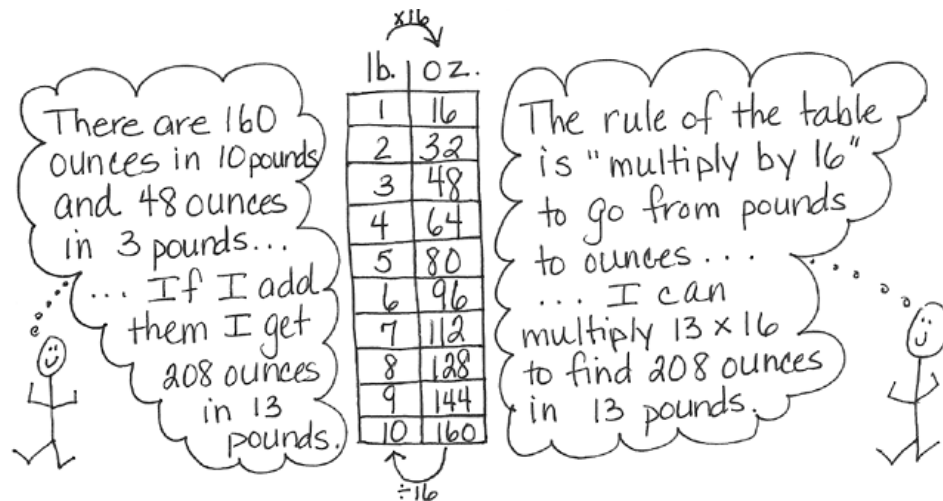 There are 160
ounces in 10 pounds
and 48 ounces
in 3 pounds...
... If I add
them I get
208 ounces
in 13
pounds.
x16
lb. oz.
1 16
2 32
3 48
4 64
5 80
6 96
7 112
8 128
9 144
10 160
÷16
The rule of the table
is "multiply by 16"
to go from pounds
to ounces ...
... I can
multiply 13 x 16
to find 208 ounces
in 13 pounds.